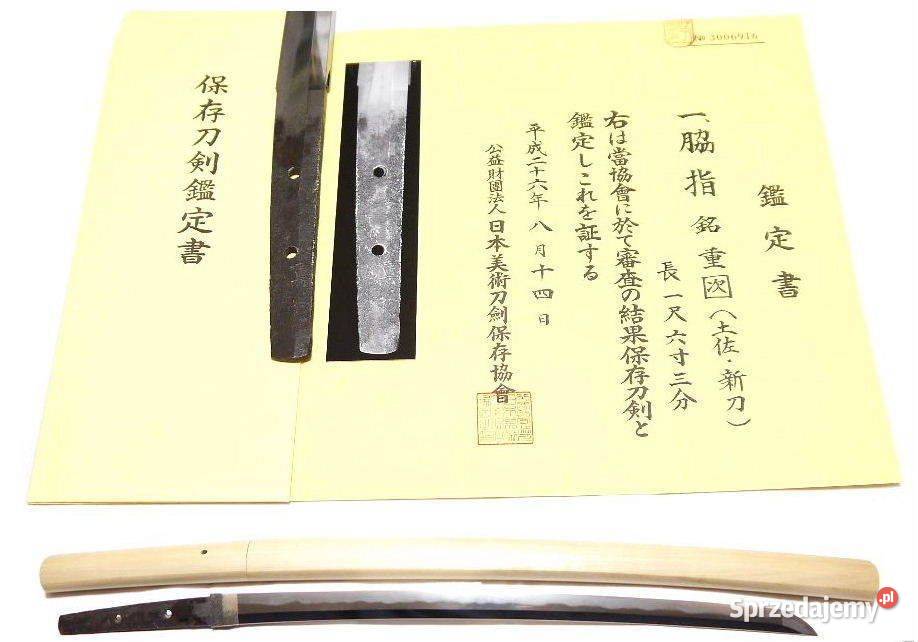 保存刀剣鑑定書
№ 3006916
鑑定書
一、脇指 銘 重次(土佐・新刀)
長一尺六寸三分
右は當協會に於て審査の結果保存刀剣と
鑑定しこれを証する
平成二十六年八月十四日
公益財團法人日本美術刀劍保存協會
Sprzedajemy.pl